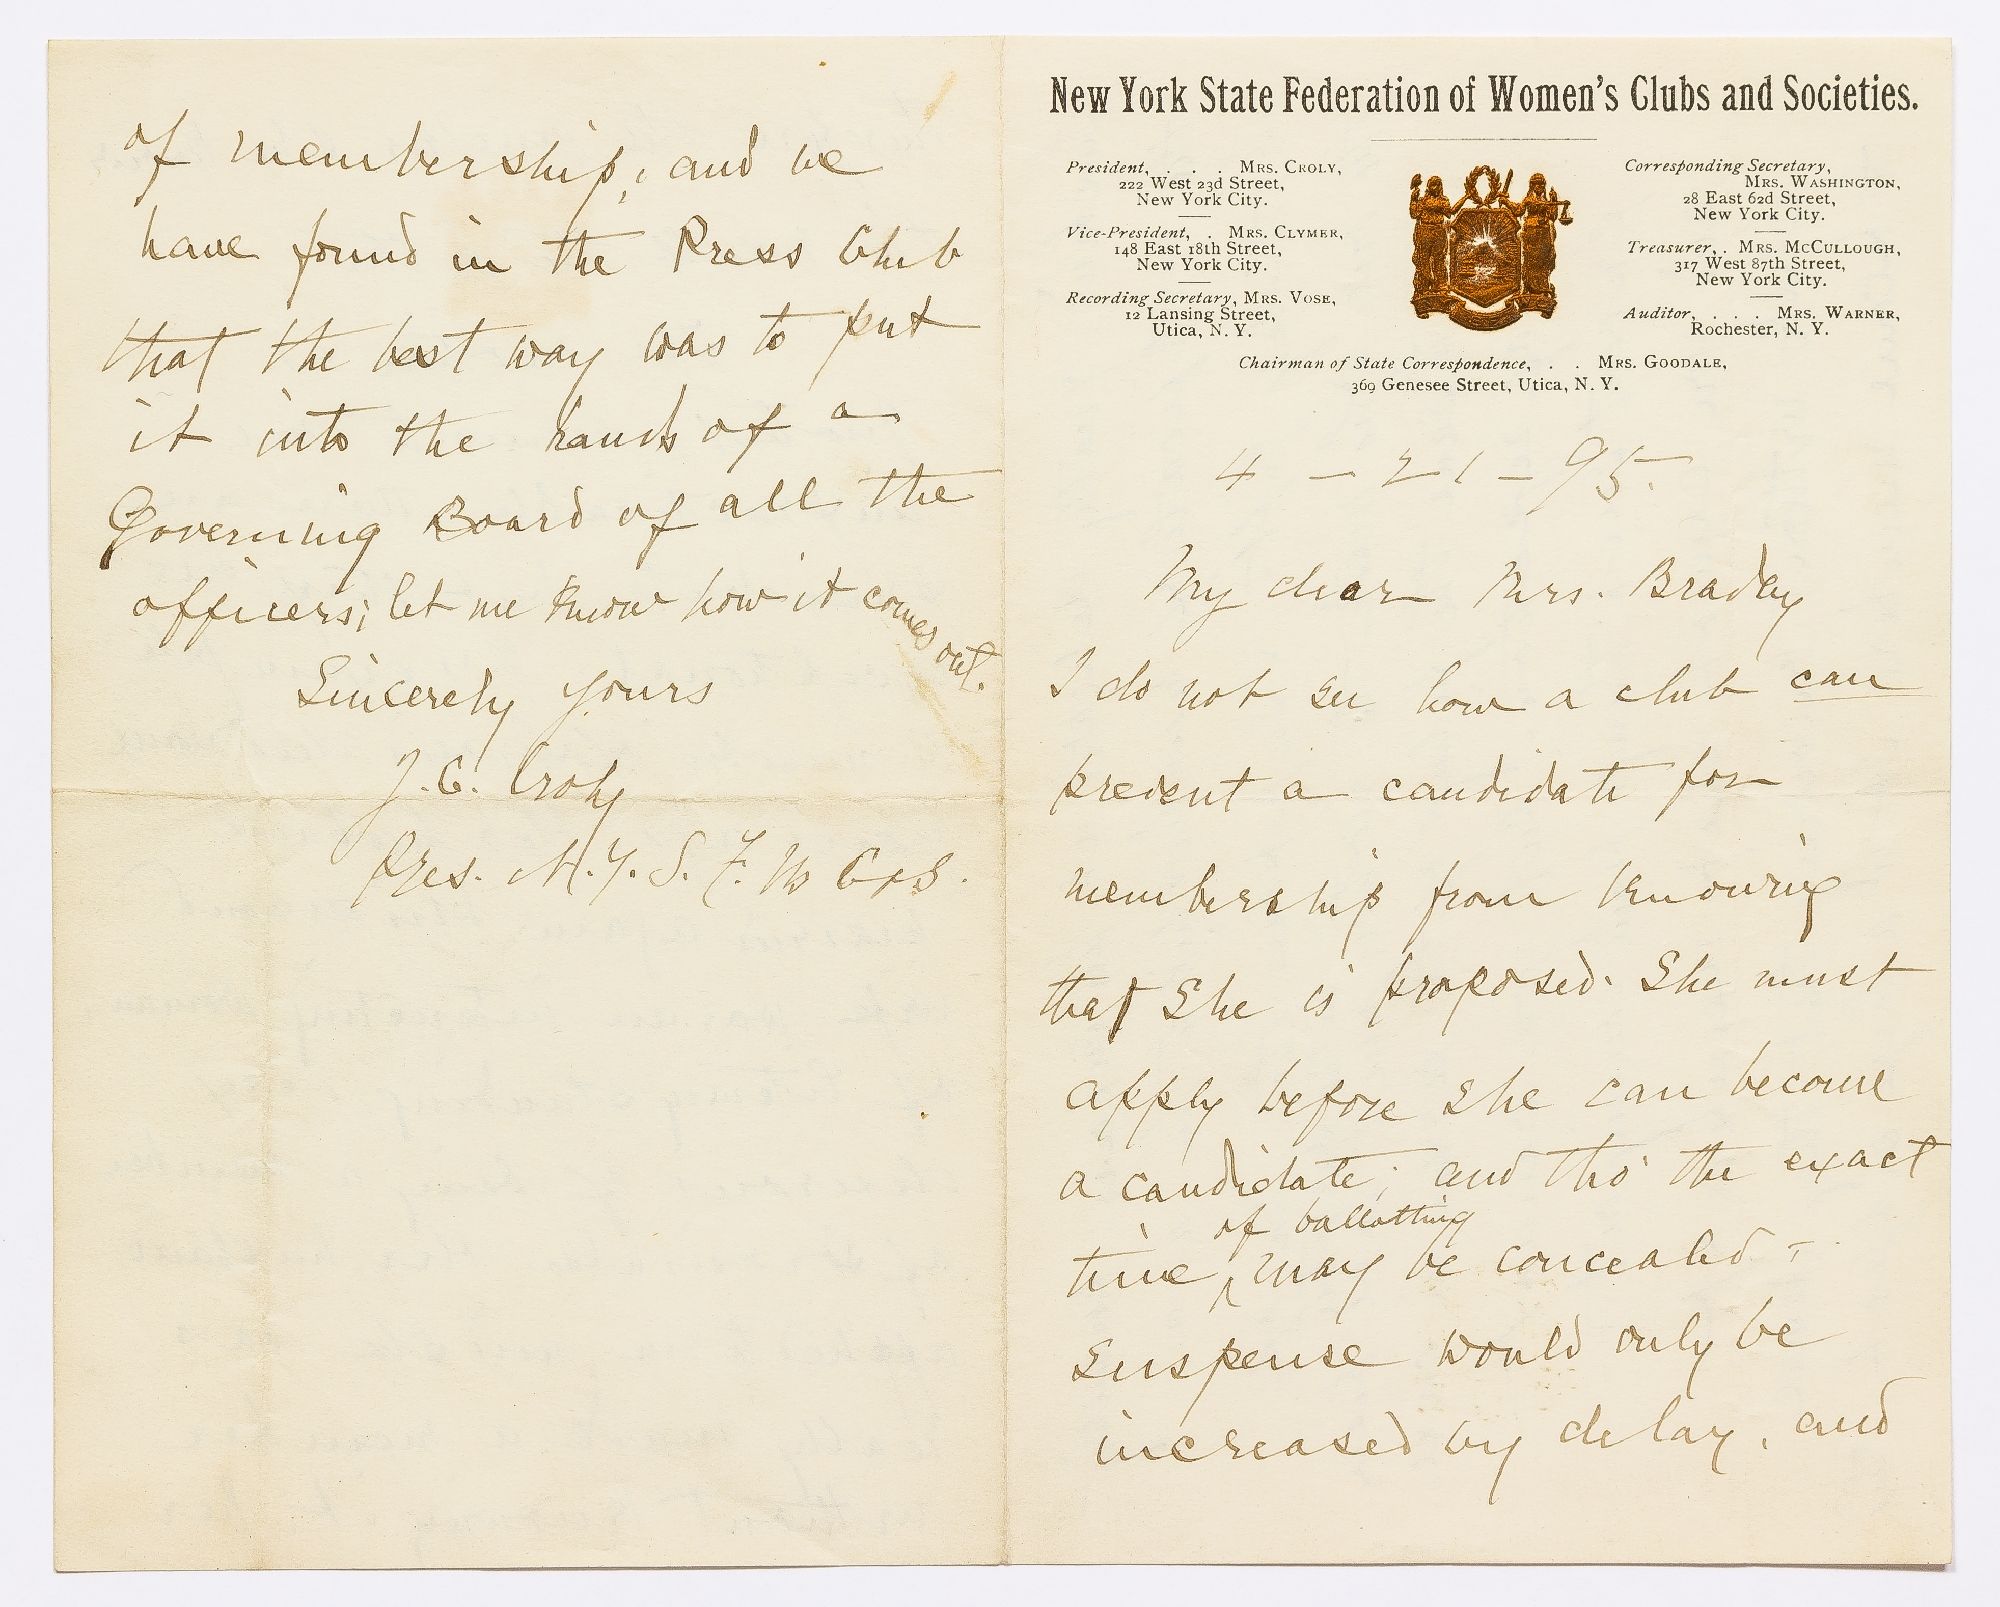 New York State Federation of Women's Clubs and Societies.
President, . . . Mrs. Croly,
222 West 23d Street,
New York City.
Vice-President, . Mrs. Clymer,
148 East 18th Street,
New York City.
Recording Secretary, Mrs. Vose,
12 Lansing Street,
Utica, N. Y.
Corresponding Secretary,
Mrs. Washington,
28 East 62d Street,
New York City.
Treasurer, . Mrs. McCullough,
317 West 87th Street,
New York City.
Auditor, . . . . Mrs. Warner,
Rochester, N. Y.
Chairman of State Correspondence, . . Mrs. Goodale,
369 Genesee Street, Utica, N. Y.
4 – 21 – 95.
My dear Mrs. Bradley
I do not see how a club can
prevent a candidate for
membership from knowing
that She is proposed. She must
apply before she can become
a candidate; and tho' the exact
of ballotting
time ^ may be concealed –
suspense would only be
increased by delay, and
of membership, and we
have found in the Press Club
that the best way was to put
it into the hands of a
Governing Board of all the
officers; let me know how it comes out.
Sincerely yours
J. C. Croly
Pres. N. Y. S. F. W C & S.